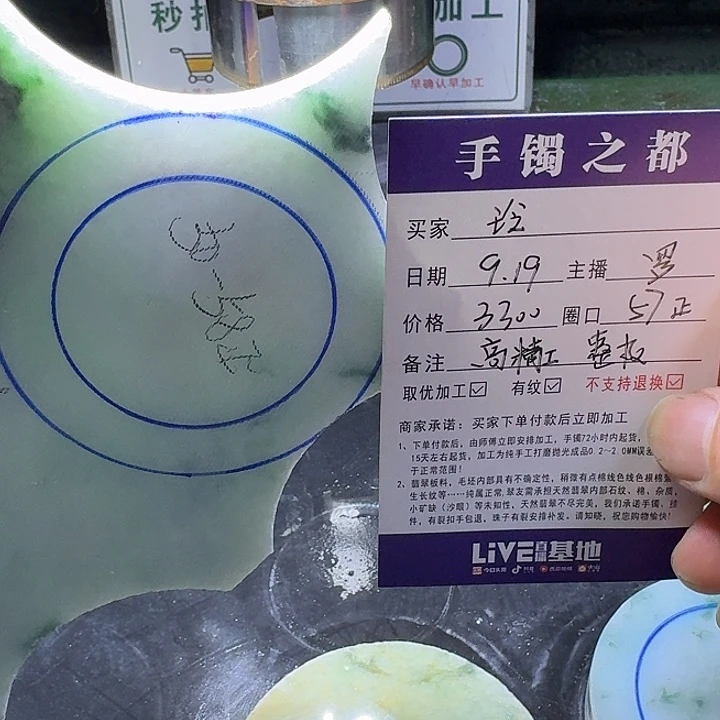 加工
早确认早加工
手镯之都
买家 玲
日期 9.19 主播 罗
价格 3300 圈口 57正
备注 高精工 整板
取优加工☑ 有纹☑ 不支持退换☑
商家承诺：买家下单付款后立即加工
1、下单付款后，由师傅立即安排加工，手镯72小时内起货，
15天左右起货，加工为纯手工打磨抛光成品0.2~2.0MM误差
于正常范围！
2、翡翠板料，毛坯内部具有不确定性，稍微有点棉线色线色根棉
生长纹等……纯属正常.翠友需承担天然翡翠内部石纹、棉、杂质、
小矿缺（沙眼）等未知性，天然翡翠不尽完美，我们承诺手镯、挂
件，有裂扣手包退，珠子有裂安排补发。请知晓，祝您购物愉快！
LiVE直播基地